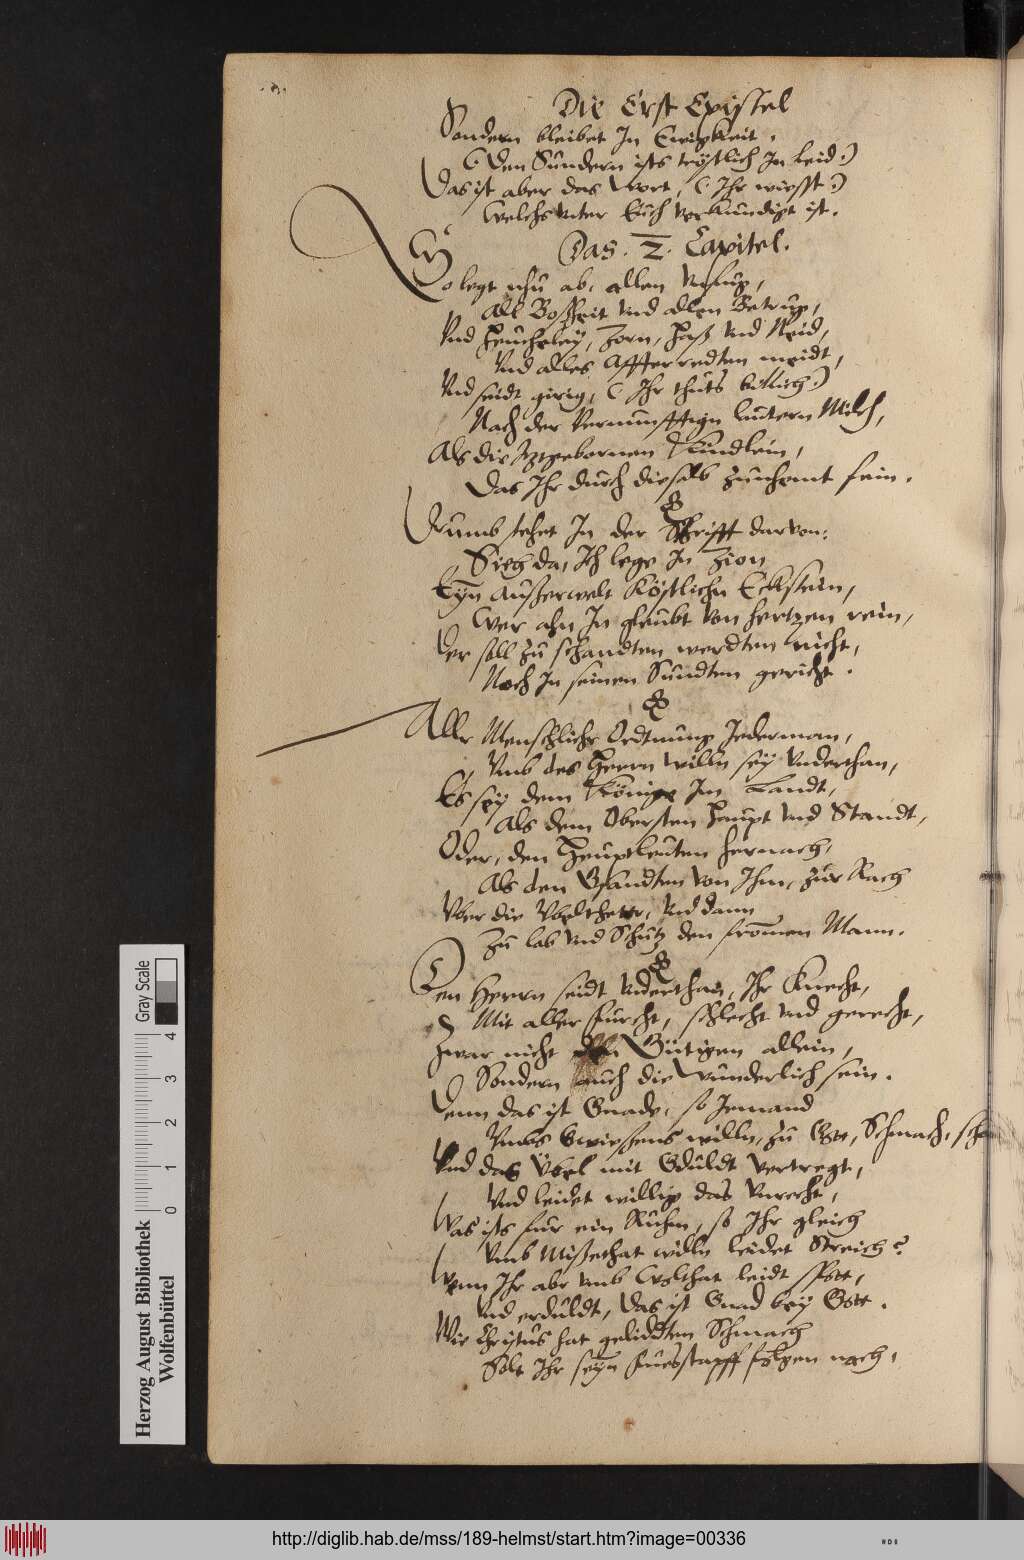 Die Erst Epistel
Sondern bleibet In Ewigkeit.
(: Den Sündern ists tröstlich In leid :)
Das ist aber das Wort, (: Ihr wisst :)
Welchs unter Euch verkündigt ist.
Das. 2. Capitel.
So legt nhu ab, allen
All Boßheit und allen Betrug,
Und Heucheley, Zorn, Haß und Neid,
Und alles Affterredten meidt,
Und seidt girig, (: Ihr thuts billich :)
Nach der Vernunfftign lautern Milch,
Als die Itztgebornen Kindlein,
Das Ihr durch dieselb zunhemt fein.
Drumb stehet In der Schrifft darvon:
Sieh da, Ich lege In Zion
Eyn außerwelt Köstlichn Eckstein,
Wer ahn In gleubt von Hertzen rein,
Der soll zu schandten werdten nicht,
Noch In seinen Sundten gericht.
Aller Menschlicher Ordtnung Jederman,
Umb des Herrn willn sey underthan,
Es sey dem Könige Im Landt,
Als dem Obersten Haupt und Standt,
Oder, den Heuptleuten hernach,
Als den Gsandten von Ihm, zür Rach
Uber die Ubelthetr, und dann
Zu lob und Schutz den fromen Mann.
Den Herrn seidt underthan, Ihr Knecht,
Mit aller furcht, schlecht und gerecht,
Zwar nicht den Gütigen allein,
Sondern auch die wunderlich sein.
Denn das ist Gnade, so Jemand
Umbs Gwißens willn, zu Gott, Schmach,
Und das Übel mit Gdüldt vertregt,
Und leidet willig das unrecht,
Was ists fur ein Ruhm, so Ihr gleich
Umb Mißethat willn leidet Streich?
Wenn Ihr abr umb Wolthat leidt
Und erduldt, Das ist Gnad bey Gott.
Wie Christus hat geliddten Schmach
Solt Ihr seyn fuesstapff folgen nach,
Herzog August Bibliothek
Wolfenbüttel
Gray Scale
0 1 2 3 4
http://diglib.hab.de/mss/189-helmst/start.htm?image=00336